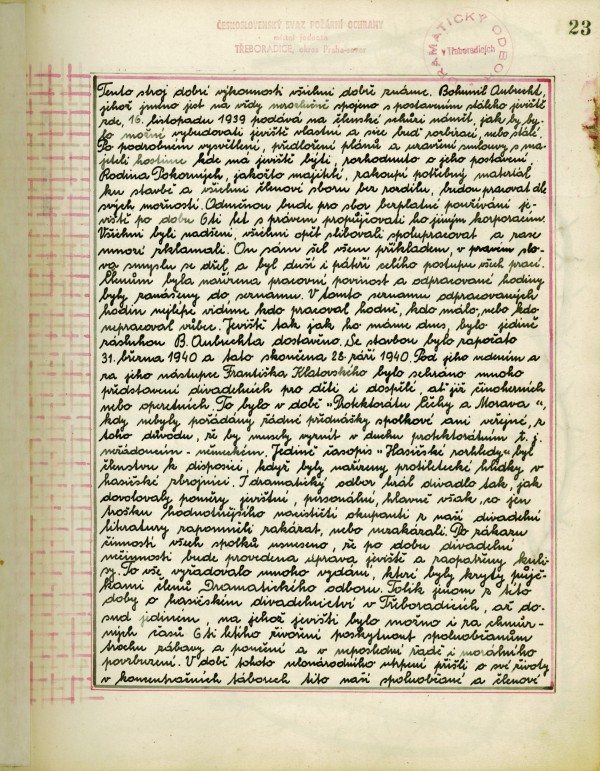 23
ČESKOSLOVENSKÝ SVAZ POŽÁRNÍ OCHRANY
místní jednota
TŘEBORADICE, okres Praha-sever
DRAMATICKÝ ODBOR
v Třeboradicích
Tento stroj dobré výkonnosti všichni dobře známe. Bohumil Aubrecht,
jehož jméno jest na vždy nerozlučně spojeno s postavením stálého jeviště
zde, 16. listopadu 1939 podává na členské schůzi námět, jak by by-
lo možné vybudovati jeviště vlastní a sice buď rozbírací, nebo stálé.
Po podrobném vysvětlení, předložení plánů a uzavření smlouvy s ma-
jiteli hostince kde má jeviště býti, rozhodnuto o jeho postavení.
Rodina Pokorných, jakožto majitelé, zakoupí potřebný materiál
ku stavbě a všichni členové sboru bez rozdílu, budou pracovat dle
svých možností. Odměnou bude pro sbor bezplatné používání je-
viště po dobu 6ti let s právem propůjčovati ho jiným korporacím.
Všichni byli nadšeni, všichni opět slibovali spolupracovat a zase
mnozí zklamali. On sám šel všem příkladem, v pravém slo-
va smyslu se dřel a byl duší i páteří celého postupu všech prací.
Členům byla nařízena pracovní povinost a odpracované hodiny
byly zanášeny do seznamu. V tomto seznamu odpracovaných
hodin nejlépe vidíme kdo pracoval hodně, kdo málo, nebo kdo
nepracoval vůbec. Jeviště tak jak ho máme dnes, bylo jedině
zásluhou B. Aubrechta dostavěno. Se stavbou bylo započato
31. března 1940 a tato skončena 28. září 1940. Pod jeho vedením a
za jeho nástupce Františka Klatovského bylo sehráno mnoho
představení divadelních pro děti i dospělé, ať již činoherních
nebo operetních. To bylo v době "Protektorátu Čechy a Morava",
kdy nebyly pořádány řádné přednášky spolkové ani veřejné, z
toho důvodu, že by musely vyznít v duchu protektorátním t. j.
velkoněmeckém. Jedině časopis "Hasičské rozhledy" byl
členstvu k disposici, když byly nařízeny protiletecké hlídky v
hasičské zbrojnici. I dramatický odbor hrál divadlo tak, jak
dovolovaly poměry jevištní, personální, hlavně však, co jen
trošku hodnotnějšího nacističtí okupanti z naší divadelní
literatury zapomněli zakázat, nebo nezakázali. Po zákazu
činnosti všech spolků usneseno, že po dobu divadelní
nečinnosti bude provedena úprava jeviště a zaopatřeny kuli-
sy. To vše vyžadovalo mnoho vydání, které byly kryty půjč-
kami členů Dramatického odboru. Tolik jenom z této
doby o hasičském divadelnictví v Třeboradicích, až do-
sud jediném, na jehož jevišti bylo možno i za chmur-
ných časů 6ti letého živoření poskytnout spoluobčanům
trochu zábavy a poučení a v neposlední řadě i morálního
povzbuzení. V době tohoto celonárodního utrpení přišli o své životy
v koncentračních táborech tito naši spoluobčané a členové